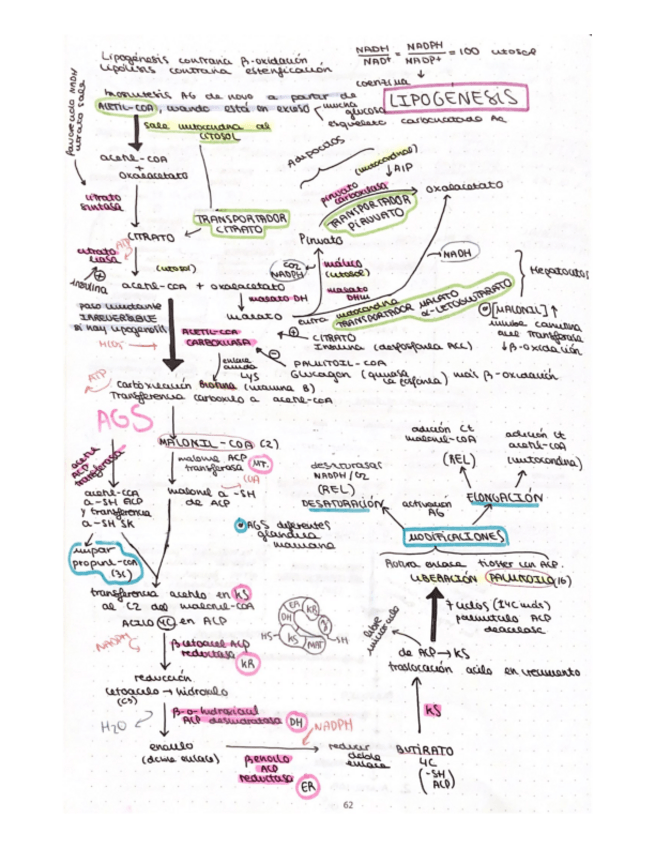 Lipogénesis contraria β-oxidación
Lipólisis contraria esterificación
NADH / NAD+ = NADPH / NADP+ = 100 citosol
coenzima
LIPOGÉNESIS
Biosíntesis AG de novo a partir de
ACETIL-COA, cuando está en exceso
mucha glucosa
esqueleto carbonatado Aa
sale mitocondria al
CITOSOL
favorecido NADH
citrato sale
acetil-COA
+
oxalacetato
citrato
sintasa
CITRATO
TRANSPORTADOR
CITRATO
Adipocitos
(mitocondrial)
ATP
piruvato
carboxilasa
oxalacetato
TRANSPORTADOR
PIRUVATO
Piruvato
citrato
liasa
ATP
(citosol)
+
insulina
acetil-COA + oxalacetato
CO2
NADPH
málico
(citosol)
NADH
malato DH
malato
malato
DHm
entra mitocondria
TRANSPORTADOR MALATO
α-CETOGLUTARATO
Hepatocitos
[MALONIL] ↑
inhibe carnitina
acil transferasa
↓ β-oxidación
paso limitante
IRREVERSIBLE
si hay lipogénesis
HCO3-
ACETIL-COA
CARBOXILASA
+ CITRATO
Insulina (desfosforila ACC)
- PALMITOIL-COA
Glucagon (quinasa la fosforila) más β-oxidación
enlace
amida
Lys
ATP
Carboxilación Biotina (vitamina B)
Transferencia carboxilo a acetil-COA
AGS
MALONIL-COA (2)
acetil
ACP
transferasa
malonil ACP
transferasa
MT.
COA
acetil-COA
a -SH ACP
y transferencia
a -SH SK
malonil a -SH
de ACP
AGS diferentes
glándula
mamaria
impar
propionil-COA
(3C)
desaturasas
NADPH/O2
(REL)
DESATURACIÓN
activación
AG
adición C+
malonil-COA
(REL)
adición C+
acetil-COA
(mitocondria)
ELONGACIÓN
MODIFICACIONES
Rotura enlace tioéster con ACP.
LIBERACIÓN PALMITOIL (16)
transferencia acetilo en KS
al C2 del malonil-COA
ACILO 4C en ACP
7 ciclos (14C más)
ACP
libre
de ACP → KS
traslocación acilo en crecimiento
EA
KR
DH
KS
MAT
HS-
-SH
NADPH
β-cetoacil ACP
reductasa
KR
reducción
cetoacilo → hidroxilo
(C3)
KS
H2O
ACP deshidratasa
DH
NADPH
enoilo
(doble enlace)
β-enoilo
ACP
reductasa
ER
reducir
doble
enlace
BUTIRATO
4C
(-SH
ACP)
62